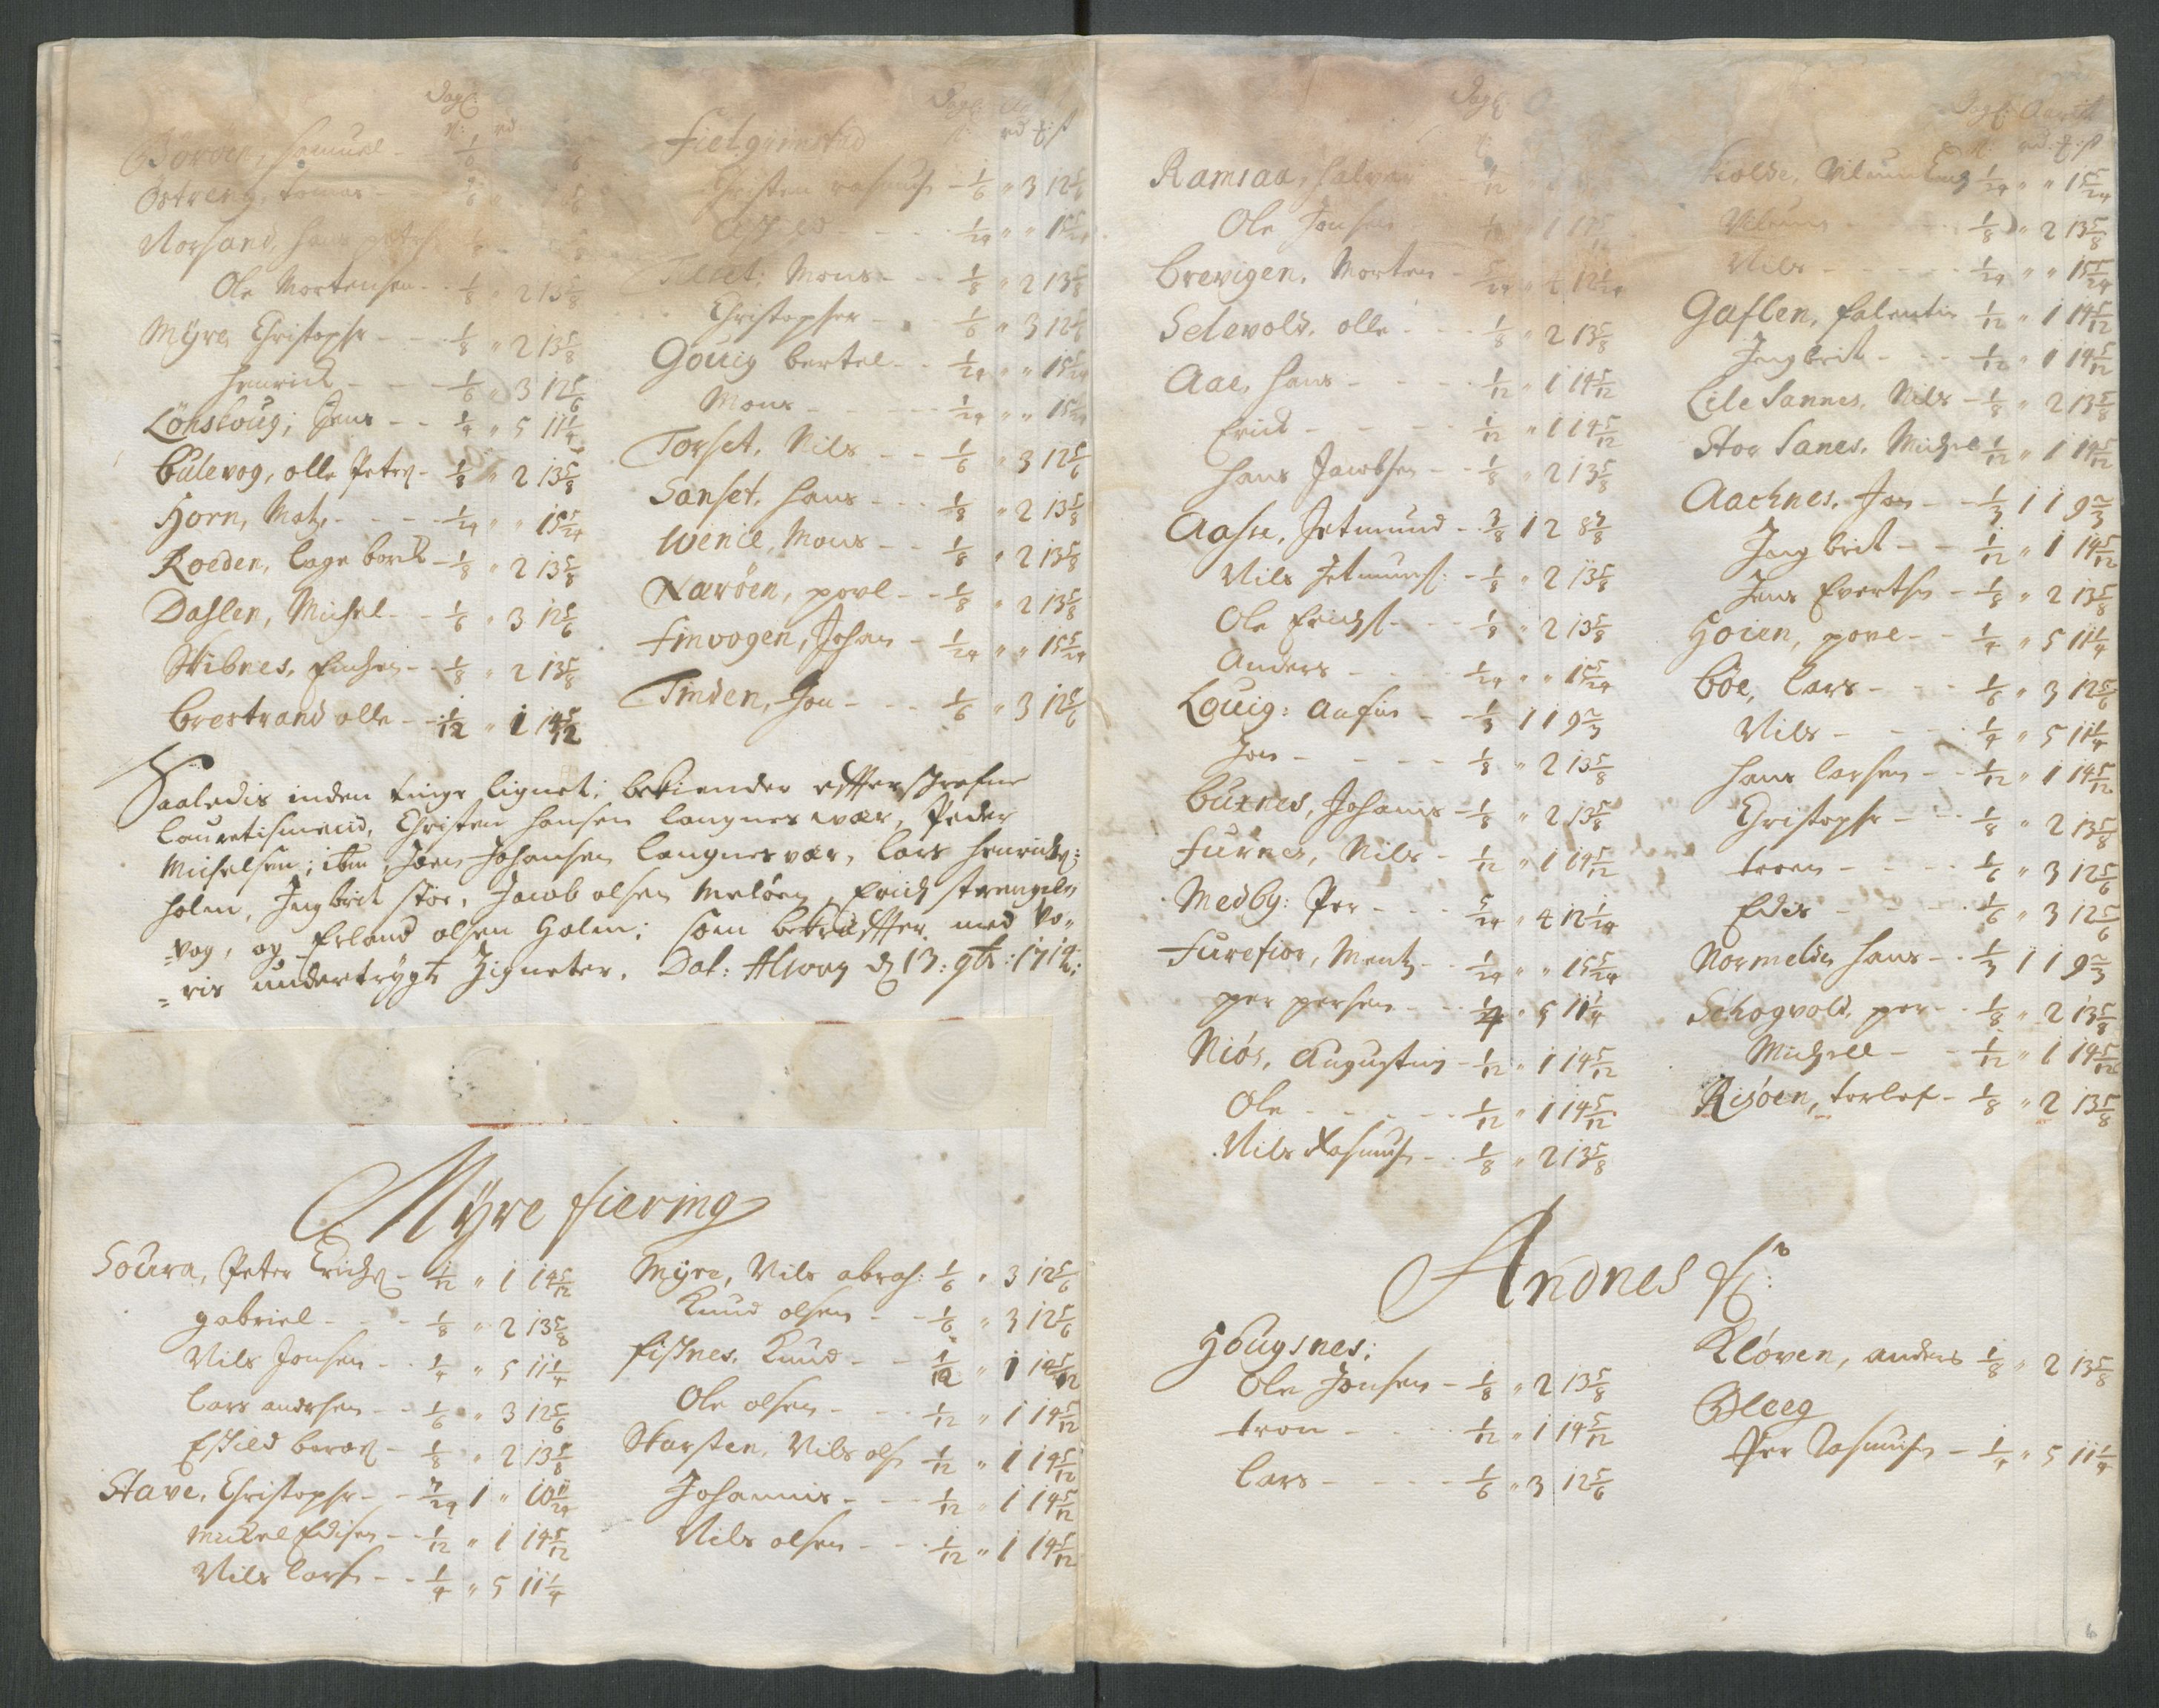 Dagl:
Boröen, Samuel - 1/6
Östreng, tomas
Norsand, hans peters
Ole Mortensen - 1/8 " 2 13 5/8
Myre, Christopher - - 1/8 " 2 13 5/8
henrich - - - 1/6 " 3 12 5/6
Lönskoug, Jens - - 1/4 " 5 11 1/4
Bulevog, olle Peters - 1/8 " 2 13 5/8
Horn, Matz - - - 1/24 " " 15 5/24
Roeden, lage - 1/8 " 2 13 5/8
Dahlen, Michel - - 1/6 " 3 12 5/6
Skibnes, - - 1/8 " 2 13 5/8
Brestrand olle - - 1/12 " 1 14 5/12
Dagl:
rd ₰: ß
Fielgimstad
Christen rasmus - 1/6 " 3 12 5/6
- - - 1/24 " " 15 5/24
Mons - - 1/8 " 2 13 5/8
Christopher - 1/6 " 3 12 5/6
Gouig bertel - - 1/24 " " 15 5/24
Mons - - - 1/24 " " 15 5/24
Torset, Nils - - 1/6 " 3 12 5/6
Sanset, hans - - - 1/8 " 2 13 5/8
Wenie, Mons - - 1/8 " 2 13 5/8
Naröen, povl - - 1/8 " 2 13 5/8
Finvogen, Johan - 1/24 " " 15 5/24
Tinden, Jon - - - 1/6 " 3 12 5/6
Saaledis inden tinge lignet; bekiender effterskrefne
lauretismend, Christen hansen langnesvær, Peder
Michelsen; ibm, Joen Johansen langnesvær, lars henrichs:
holm, Ingbrit stöe, Jacob olsen Meløen, Erich strengels
=vog, og Erland olsen Holm; som bekræffter med vo-
=ris undertrygte Zigneter. Dat: Alsvog d 13: 9br: 1712:
Myre fiering
Soura, Peter Erichs - 1/12 " 1 14 5/12
gabriel - - - 1/8 " 2 13 5/8
Nils Jonsen - - 1/4 " 5 11 1/4
lars andersen - - 1/6 " 3 12 5/6
Eskild - 1/8 " 2 13 5/8
Stave, Christopher - - 7/24 1 " 10 11/24
Mickel Edisen - - 1/12 " 1 14 5/12
Nils lars - - 1/4 " 5 11 1/4
Myre, Nils abrah: 1/6 " 3 12 5/6
Knud olsen - - 1/6 " 3 12 5/6
fisknes, Knud - - 1/12 " 1 14 5/12
Ole olsen - - - 1/12 " 1 14 5/12
Skarsten, Nils ols 1/12 " 1 14 5/12
Johannis - - - 1/12 " 1 14 5/12
Nils olsen - - - 1/12 " 1 14 5/12
Dagl:
Ramsaa, halvor - 1/12
Ole Jonsen 1/12 " 1 14 5/12
Brevigen, Morten - 5/24 " 4 12 1/24
Selevold, olle - - - 1/8 " 2 13 5/8
Aae, hans - - - - 1/12 " 1 14 5/12
Erick - - - - 1/12 " 1 14 5/12
hans Jacobsen - - 1/8 " 2 13 5/8
Aasse, Jetmund - - 3/8 1 2 8 7/8
Nils Jetmunds: - 1/8 " 2 13 5/8
Ole Erichs - - - 1/8 " 2 13 5/8
Anders - - - - 1/24 " " 15 5/24
Louig: anfin - - 1/3 1 1 9 2/3
Jon - - - - 1/8 " 2 13 5/8
Buxnes, Johanis - 1/8 " 2 13 5/8
Furnes, Nils - 1/12 " 1 14 5/12
Medby: Per - - - 5/24 " 4 12 1/24
Furefior, Mentz - 1/24 " " 15 5/24
per persen - - - 1/4 " 5 11 1/4
Niös, Augustin - 1/12 " 1 14 5/12
Ole - - - - - 1/12 " 1 14 5/12
Nils Rasmus - - 1/8 " 2 13 5/8
Dagl: Aarlit
rd: ₰: ß
1/24 " " 15 5/24
- - - 1/8 " 2 13 5/8
Nils - - - - 1/24 " " 15 5/24
Gaflen, falentin 1/12 " 1 14 5/12
Ingbrit - - - 1/12 " 1 14 5/12
Lile Sannes, Nils - 1/8 " 2 13 5/8
Stor Sanes, Michel 1/12 " 1 14 5/12
Aachnes, Jon - - 1/3 1 1 9 2/3
Ingbrit - - 1/12 " 1 14 5/12
Jens Evertsen - 1/8 " 2 13 5/8
Hoien, povel - - 1/4 " 5 11 1/4
Böe, lars - - - 1/6 " 3 12 5/6
Nils - - - - 1/4 " 5 11 1/4
hans larsen - - 1/12 " 1 14 5/12
Christopher - - - 1/8 " 2 13 5/8
troen - - - - 1/6 " 3 12 5/6
Edis - - - - 1/6 " 3 12 5/6
Normelde, hans - - 1/3 1 1 9 2/3
Schogvold, per - - 1/8 " 2 13 5/8
Michell - - 1/12 " 1 14 5/12
Risöen, torlef - 1/8 " 2 13 5/8
Andnes f:
Hougsnes;
Ole Jonsen - 1/8 " 2 13 5/8
tron - - - - 1/12 " 1 14 5/12
Lars - - - - 1/6 " 3 12 5/6
Klöven, anders 1/8 " 2 13 5/8
Bleeg
Per Rasmus - 1/4 " 5 11 1/4
6